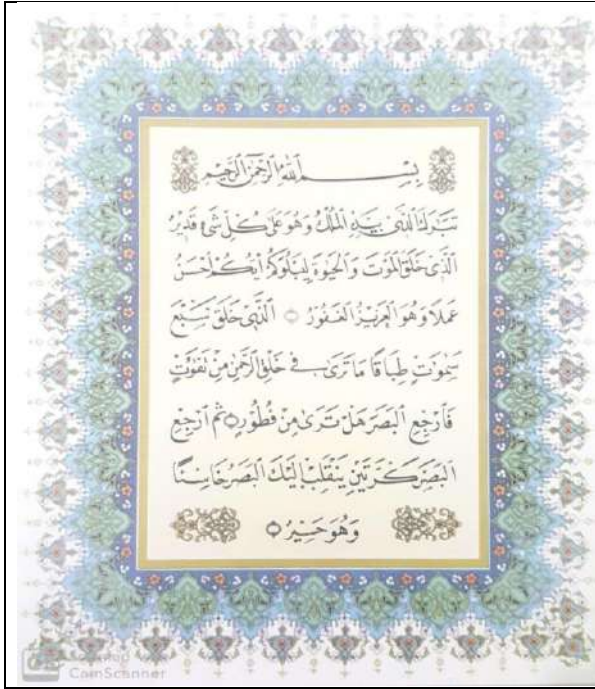 بِسْمِ ٱللَّهِ ٱلرَّحْمَٰنِ ٱلرَّحِيمِ
تَبَٰرَكَ ٱلَّذِى بِيَدِهِ ٱلْمُلْكُ وَهُوَ عَلَىٰ كُلِّ شَىْءٍ قَدِيرٌ
ٱلَّذِى خَلَقَ ٱلْمَوْتَ وَٱلْحَيَوٰةَ لِيَبْلُوَكُمْ أَيُّكُمْ أَحْسَنُ
عَمَلًا وَهُوَ ٱلْعَزِيزُ ٱلْغَفُورُ ۝ ٱلَّذِى خَلَقَ سَبْعَ
سَمَٰوَٰتٍ طِبَاقًا مَا تَرَىٰ فِى خَلْقِ ٱلرَّحْمَٰنِ مِنْ تَفَٰوُتٍ
فَٱرْجِعِ ٱلْبَصَرَ هَلْ تَرَىٰ مِنْ فُطُورٍ ۝ ثُمَّ ٱرْجِعِ
ٱلْبَصَرَ كَرَّتَيْنِ يَنْقَلِبْ إِلَيْكَ ٱلْبَصَرُ خَاسِئًا
وَهُوَ حَسِيرٌ ۝
CamScanner